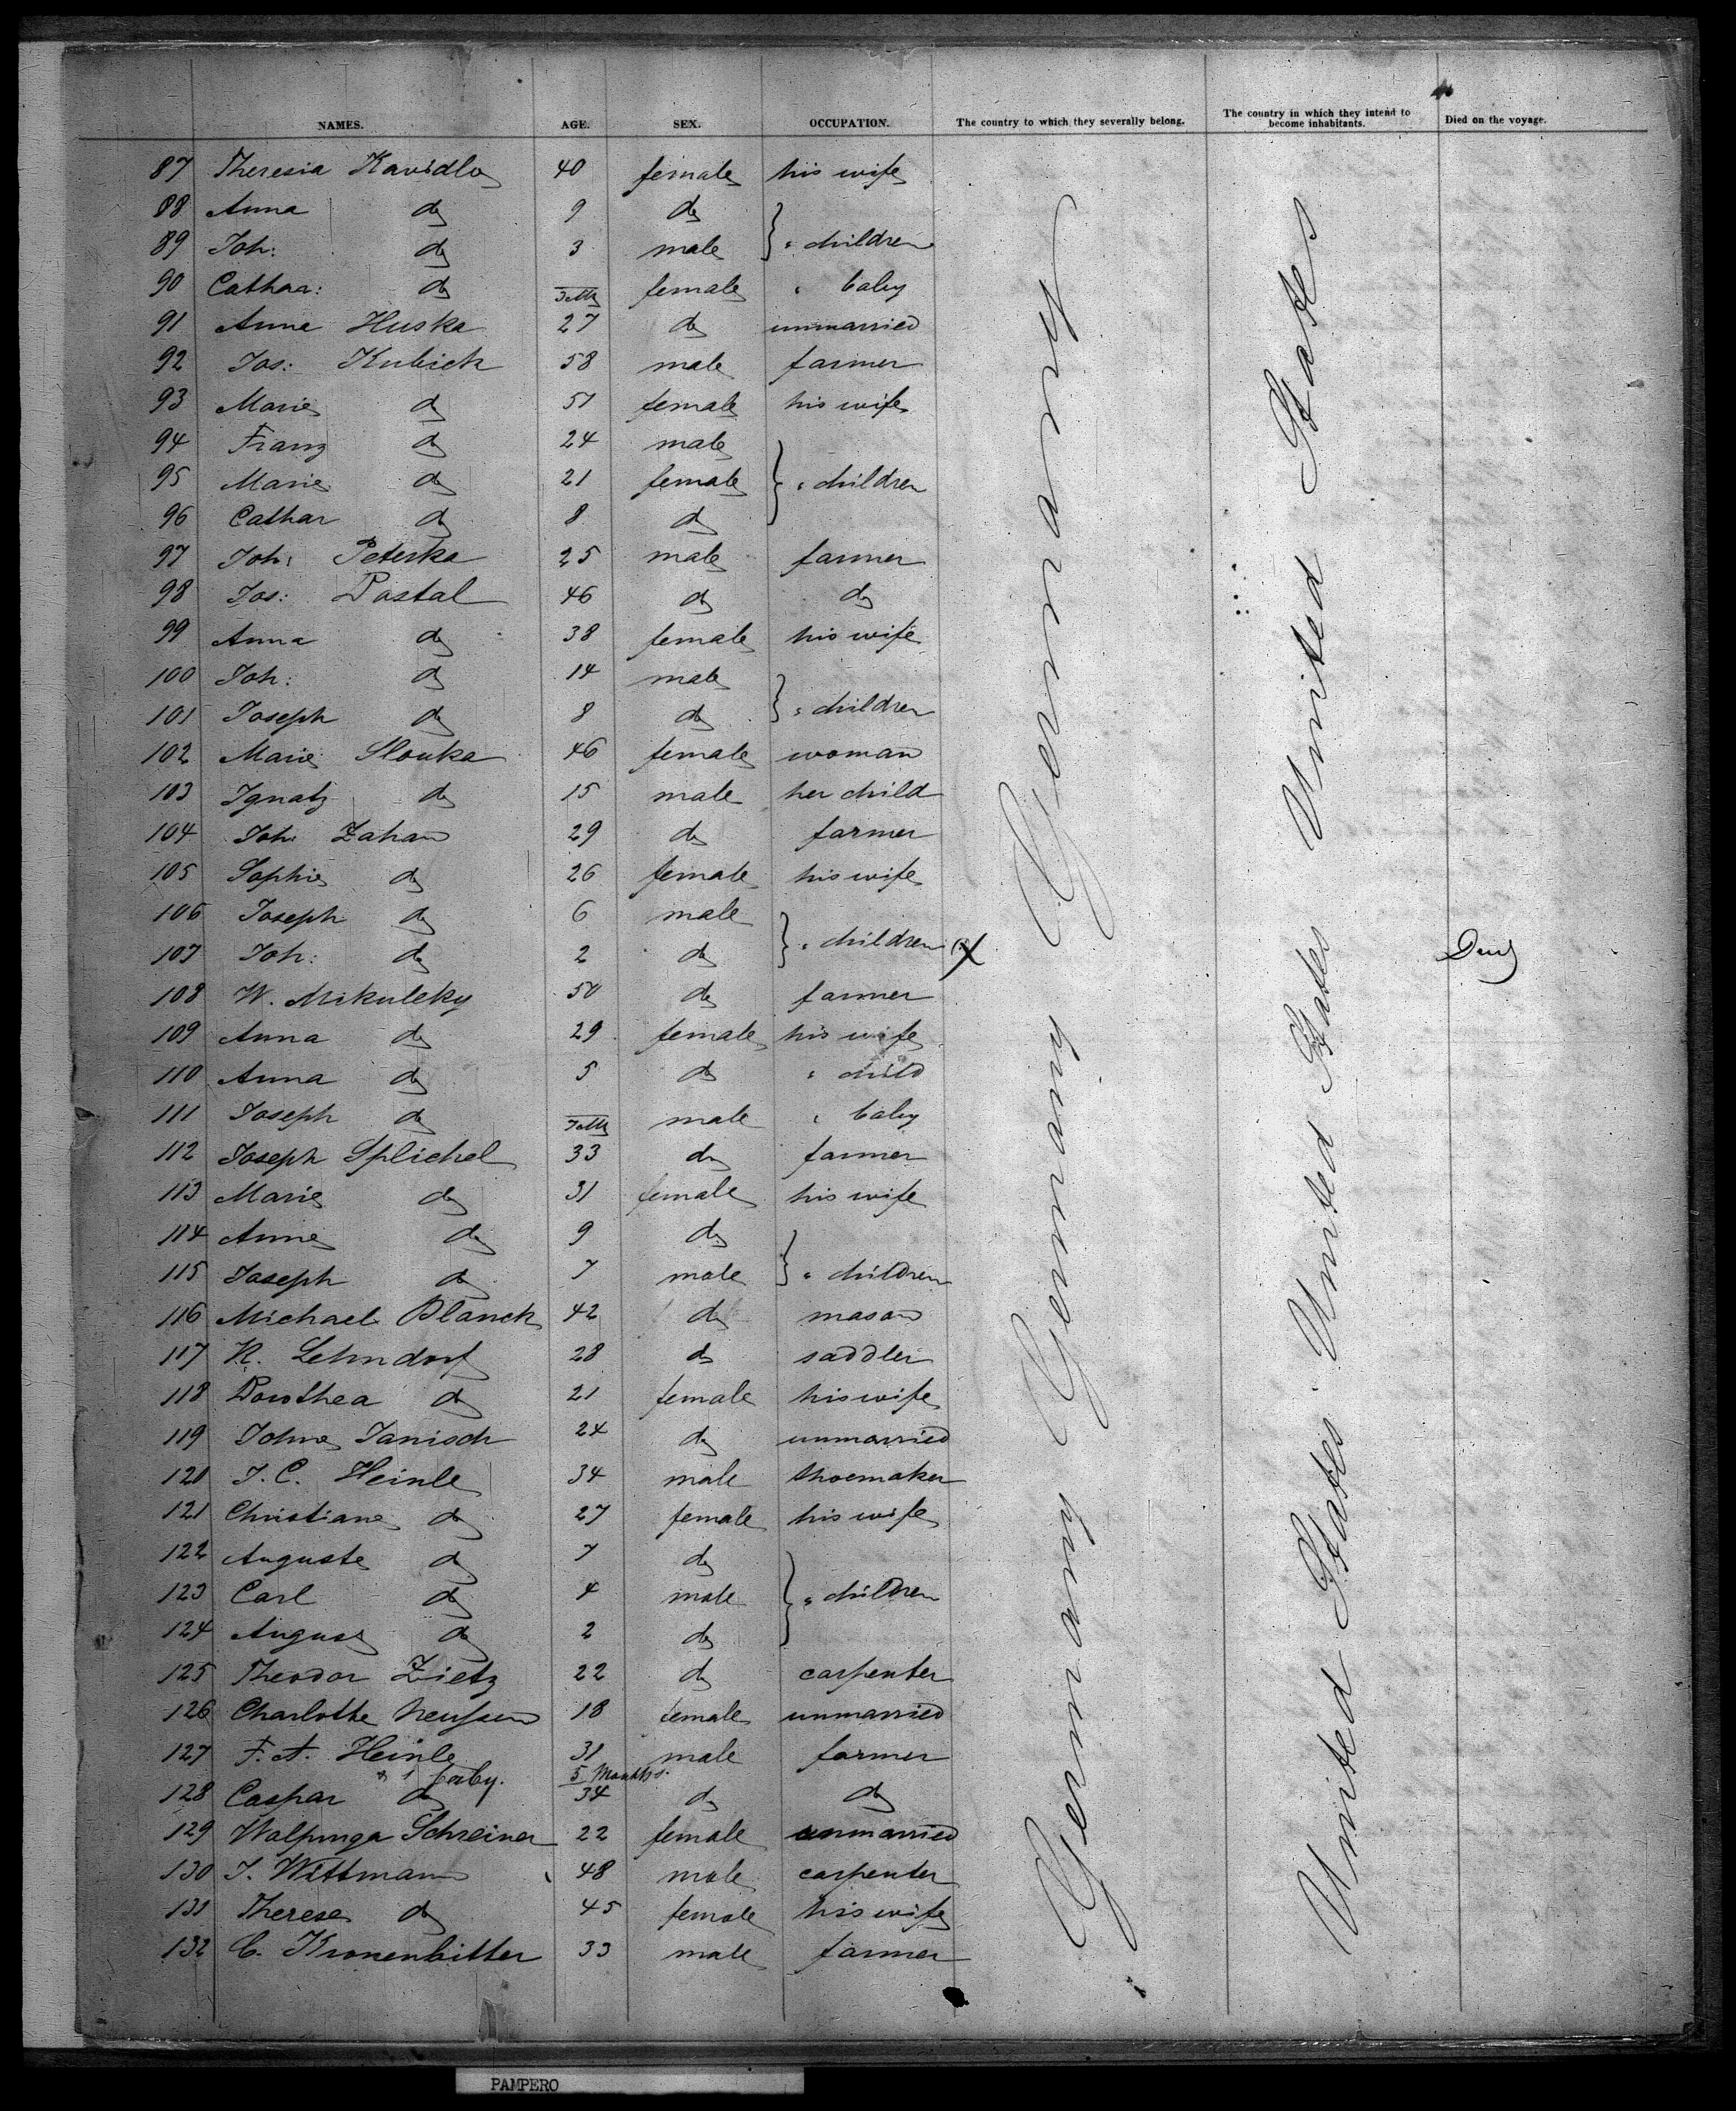 NAMES. AGE. SEX. OCCUPATION. The country to which they severally belong. The country in which they intend to become inhabitants. Died on the voyage.
87 Theresia Kavidlo 40 female his wife
88 Anna do 9 do
89 Joh: do 3 male " children
90 Cathar: do female " baby
91 Anna Huska 27 do unmarried
92 Jos: Kubick 58 male farmer
93 Marie do 51 female his wife
94 Franz do 24 male
95 Marie do 21 female " children
96 Cathar do 8 do
97 Joh: Peterka 25 male farmer
98 Jos: Dostal 46 do do
99 Anna do 38 female his wife
100 Joh: do 14 male
101 Joseph do 8 do " children
102 Marie Slouka 46 female woman
103 Ignatz do 15 male her child
104 Joh: Zahan 29 do farmer
105 Sophie do 26 female his wife
106 Joseph do 6 male
107 Joh: do 2 do " children X
108 W. Mikuleky 50 do farmer
109 Anna do 29 female his wife
110 Anna do 5 do " child
111 Joseph do male " baby
112 Joseph Splichel 33 do farmer
113 Marie do 31 female his wife
114 Anne do 9 do
115 Joseph do 7 male " children
116 Michael Blanck 42 do mason
117 R. Lehndorf 28 do saddler
118 Dorothea do 21 female his wife
119 Janisch 24 do unmarried
120 J. C. Heinle 34 male shoemaker
121 Christiane do 27 female his wife
122 Auguste do 7 do
123 Carl do 4 male " children
124 August do 2 do
125 Theodor Zietz 22 do carpenter
126 Charlotte 18 female unmarried
127 F. A. Heinle 31 male farmer
1 baby. 5 Months.
128 Caspar do 34 do do
129 Walpurga Schreiner 22 female unmarried
130 J. Wittmann 48 male carpenter
131 Therese do 45 female his wife
132 C. Kronenbitter 33 male farmer
Germany Germany Germany
United States United States United States
PAMPERO